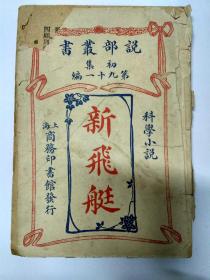 說部叢書
初集
第九十一編
科學小說
新飛艇
上海
商務印書館發行